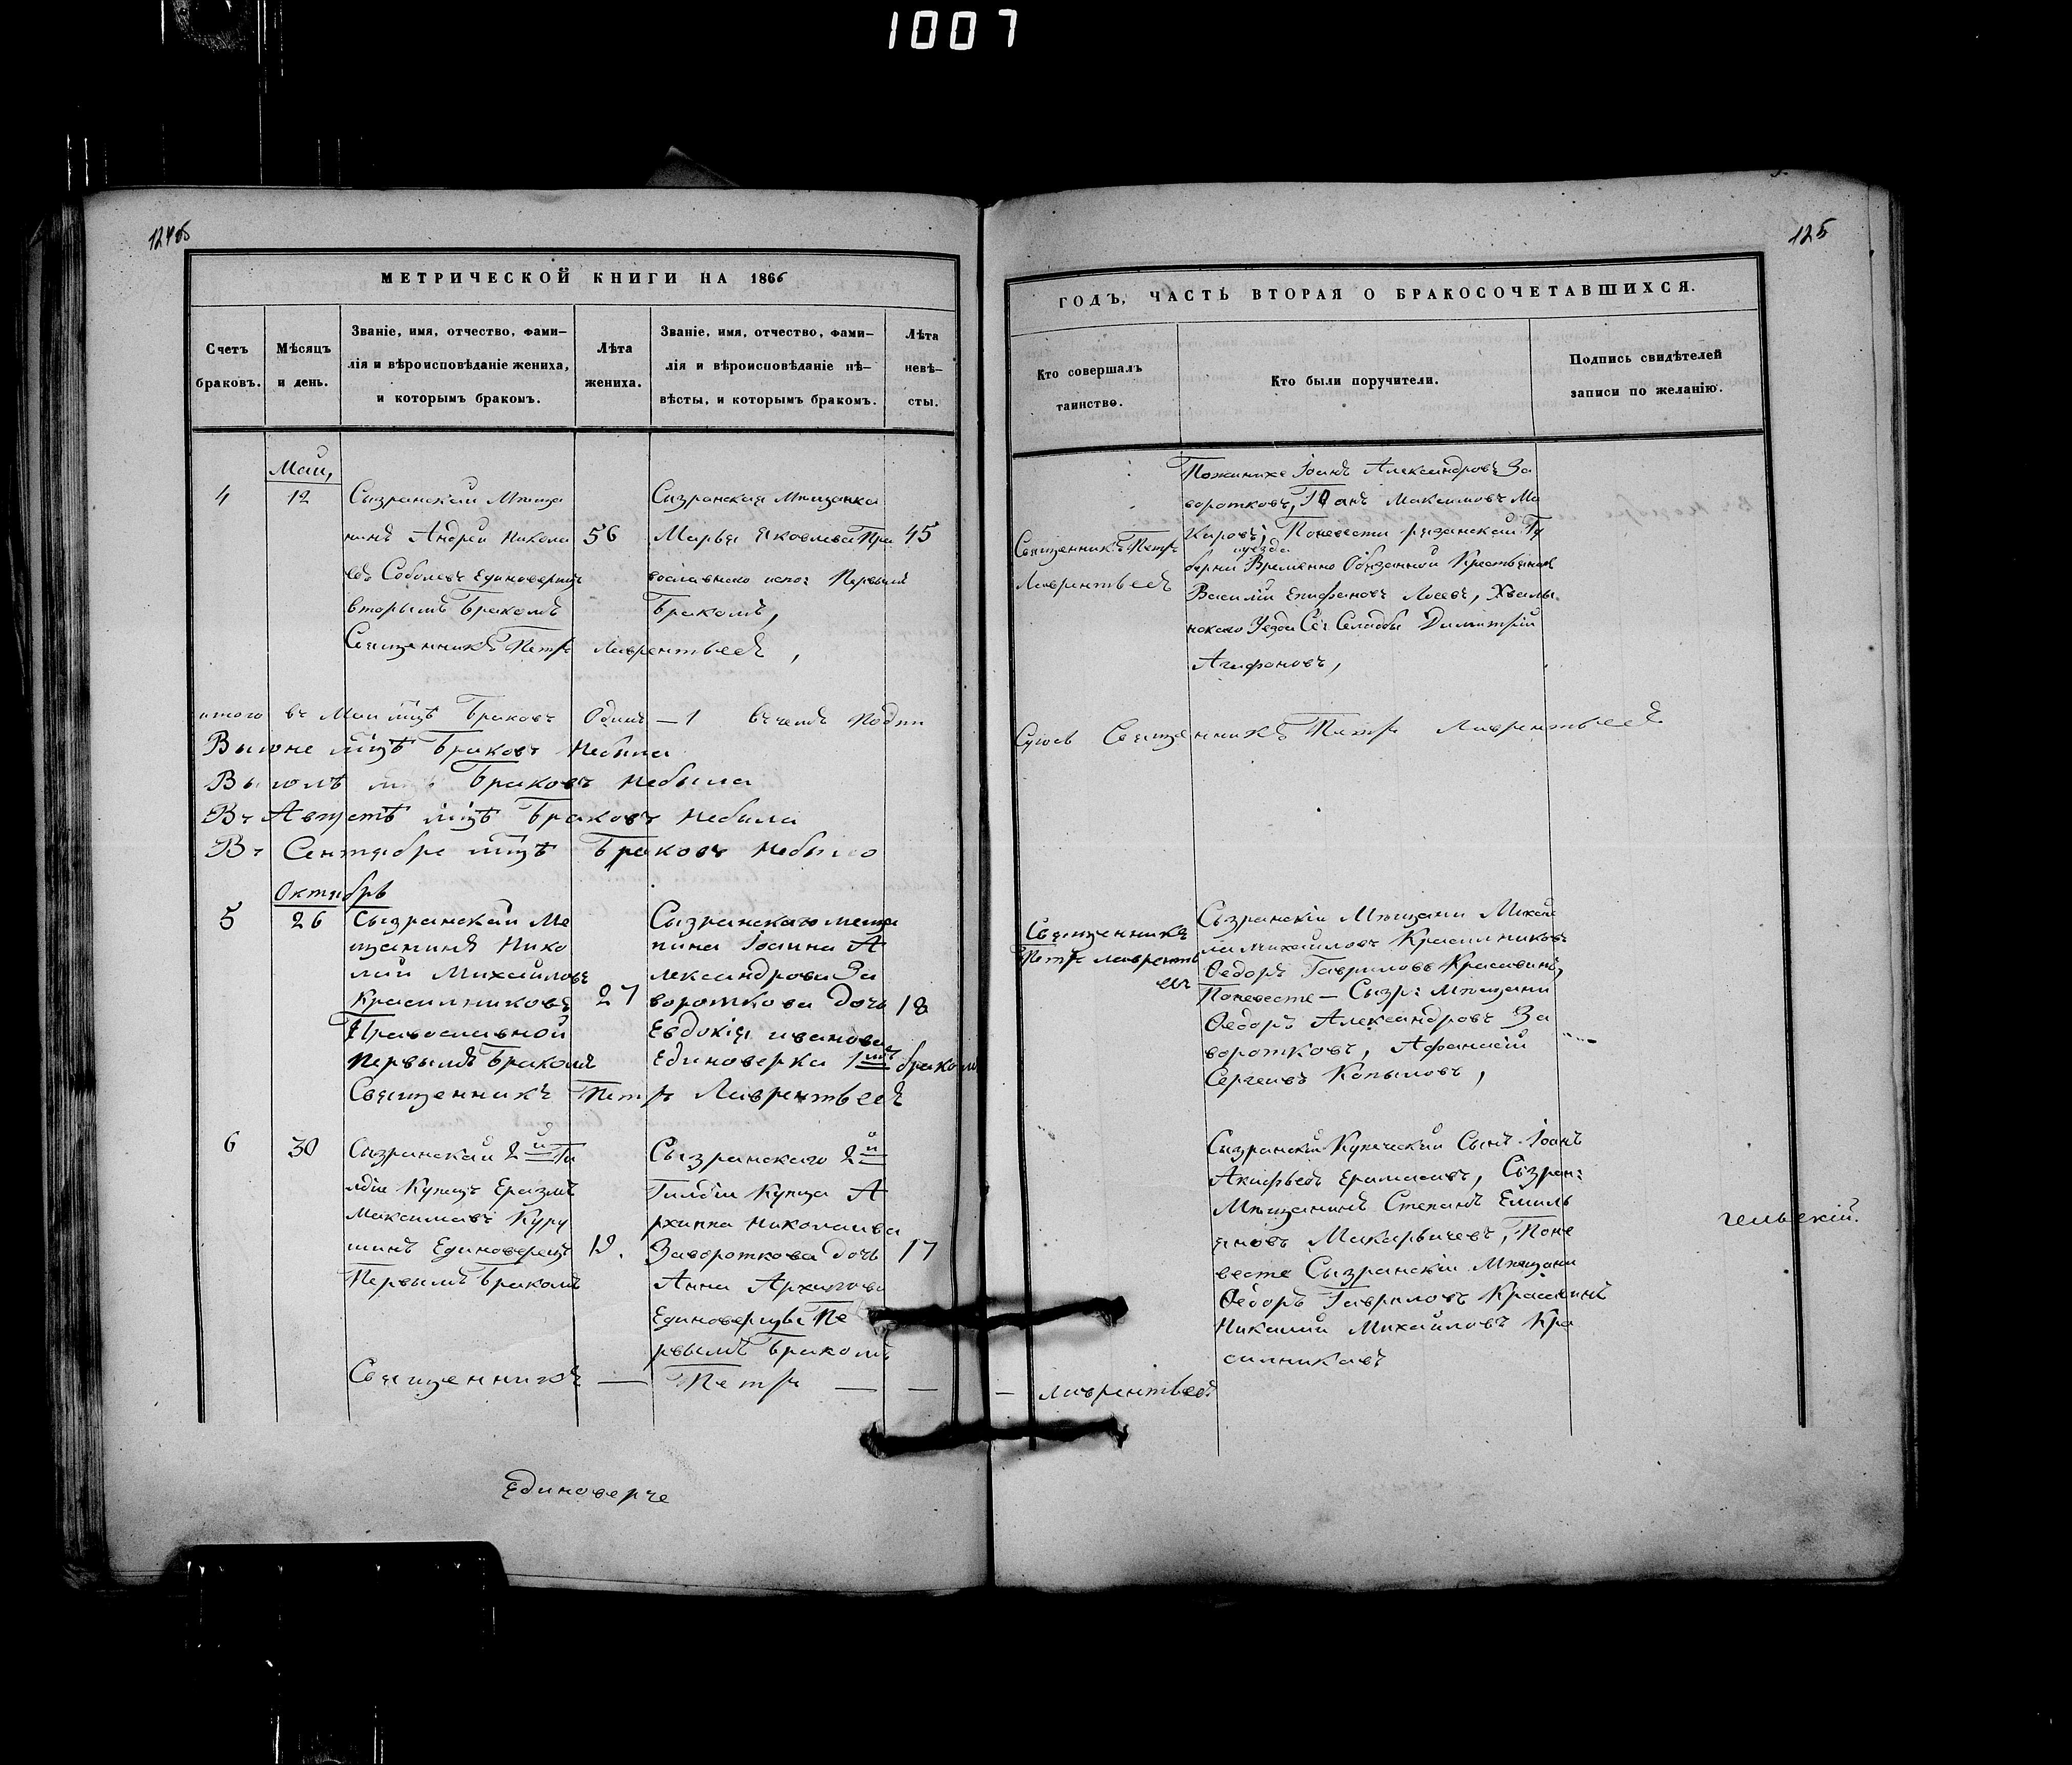 1007
124об
МЕТРИЧЕСКОЙ КНИГИ НА 1866
Счетъ браковъ.
Мѣсяцъ и день.
Званіе, имя, отчество, фами-
лія и вѣроисповѣданіе жениха,
и которымъ бракомъ.
Лѣта жениха.
Званіе, имя, отчество, фами-
лія и вѣроисповѣданіе нѣ-
вѣсты, и которымъ бракомъ.
Лѣта невѣ-
сты.
Маи,
4
12
Сызранскаи Мѣща
нинъ Андреи Никола
евъ Соболевъ Единоверецъ
вторымъ Бракомъ
56
Сызранская Мѣщанка
Марья Яковлева Пра
вославнаго испо: Первымъ
Бракомъ,
45
Священникъ Петръ Лаврентьевъ,
итого въ Маи мцѣ Браковъ Одинъ — 1 въчемъ Подпи
Выюне мцѣ Браковъ Небыла
Выюлѣ Браковъ небыла
Въ Августѣ мцѣ Браковъ Небыла
Въ Сентябре мцѣ Браковъ небыло
Октибрь
5
26
Сызранскаи Ме
щанинъ Нико
лаи Михаиловъ
Красилниковъ
Православной
Первымъ Бракомъ
27
Сызранскаго меща
нина Іоанна А
лександрова За
вороткова дочь
Евдокія иванова
Единоверка 1мъ бракомъ
18
Священникъ Петръ Лаврентьевъ
6
30
Сызранскаи 2й Ги
лдіи Купецъ Еразмъ
Максимавъ Куру
шинъ Единоверецъ
Первымъ Бракомъ
19.
Сызранскаго 2й
Гилдіи Купца А
рхиппа Николаива
Завороткова дочь
Анна Архипова
Единоверцы Пе
рвымъ Бракомъ
17
Священникъ — Петръ — — — Лаврентьевъ
Единоверче
125
ГОДЪ, ЧАСТЬ ВТОРАЯ О БРАКОСОЧЕТАВШИХСЯ.
Кто совершалъ
таинство.
Кто были поручители.
Подпись свидѣтелей
записи по желанію.
Священникъ Петръ
Лаврентьевъ
Поженихе Іоанъ Александровъ За
воротковъ, Іоанъ Максимовъ Ма
каровъ; Поневести
берни уезда Временно Обязанной Крестьянинъ
Василіи Епифановъ Лосевъ, Хвалы
нскаго Уезда Се: Димитріи
Агафоновъ,
Суюсь Священникъ Петръ Лаврентьевъ
Священникъ
Петръ Лавренть
евъ
Сызранскіи Мѣщани Михаи
ла михаиловъ Красилниковъ
Ѳедоръ Гавриловъ Красавинъ,
Поневесте — Сызр: Мѣщани
Ѳедоръ Александровъ За
воротковъ, Афанасіи
Сергеивъ Копыловъ,
Сызранскіи Купеческаи Сынъ Іоанъ
Акифьевъ Ерамасавъ, Сызран:
Мѣщанинъ Степанъ Емиль
яновъ Макарьичевъ, Поне
весте Сызранскіи Мѣщани
Ѳедоръ Гавриловъ Красавинъ
Николаи Михаиловъ Кра
силникавъ
гельскій.